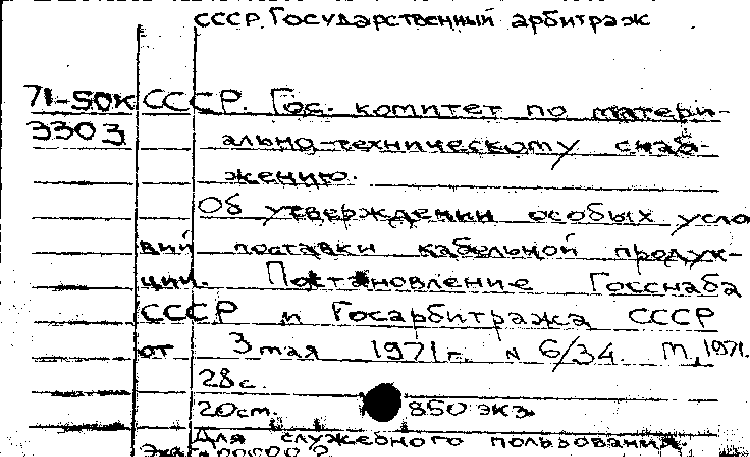 СССР. Государственный арбитраж
71-50к СССР. Гос. комитет по матери-
3303 ально-техническому снаб-
жению.
Об утверждении особых усло
вий поставки кабельной продук-
ции. Постановление Госснаба
СССР и Госарбитража СССР
от 3 мая 1971 г. N 6/34. М, 1971.
28 с.
20 см. 850 экз.
Для служебного пользования.